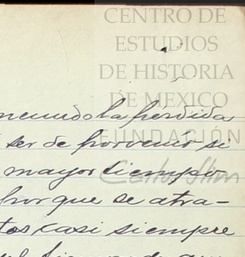 CENTRO DE
ESTUDIOS
DE HISTORIA
DE MEXICO
FUNDACIÓN
la perdida
ser de porvenir si
mayor tiempo
por que se atra-
tos casi siempre